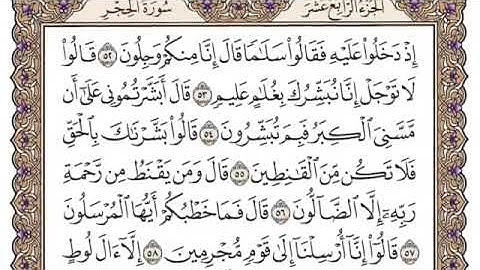 الجزء الرابع عشر
سورة الحجر
إِذْ دَخَلُوا۟ عَلَيْهِ فَقَالُوا۟ سَلَٰمًا قَالَ إِنَّا مِنكُمْ وَجِلُونَ ٥٢ قَالُوا۟
لَا تَوْجَلْ إِنَّا نُبَشِّرُكَ بِغُلَٰمٍ عَلِيمٍ ٥٣ قَالَ أَبَشَّرْتُمُونِى عَلَىٰٓ أَن
مَّسَّنِىَ ٱلْكِبَرُ فَبِمَ تُبَشِّرُونَ ٥٤ قَالُوا۟ بَشَّرْنَٰكَ بِٱلْحَقِّ
فَلَا تَكُن مِّنَ ٱلْقَٰنِطِينَ ٥٥ قَالَ وَمَن يَقْنَطُ مِن رَّحْمَةِ
رَبِّهِۦٓ إِلَّا ٱلضَّآلُّونَ ٥٦ قَالَ فَمَا خَطْبُكُمْ أَيُّهَا ٱلْمُرْسَلُونَ
٥٧ قَالُوٓا۟ إِنَّآ أُرْسِلْنَآ إِلَىٰ قَوْمٍ مُّجْرِمِينَ ٥٨ إِلَّآ ءَالَ لُوطٍ